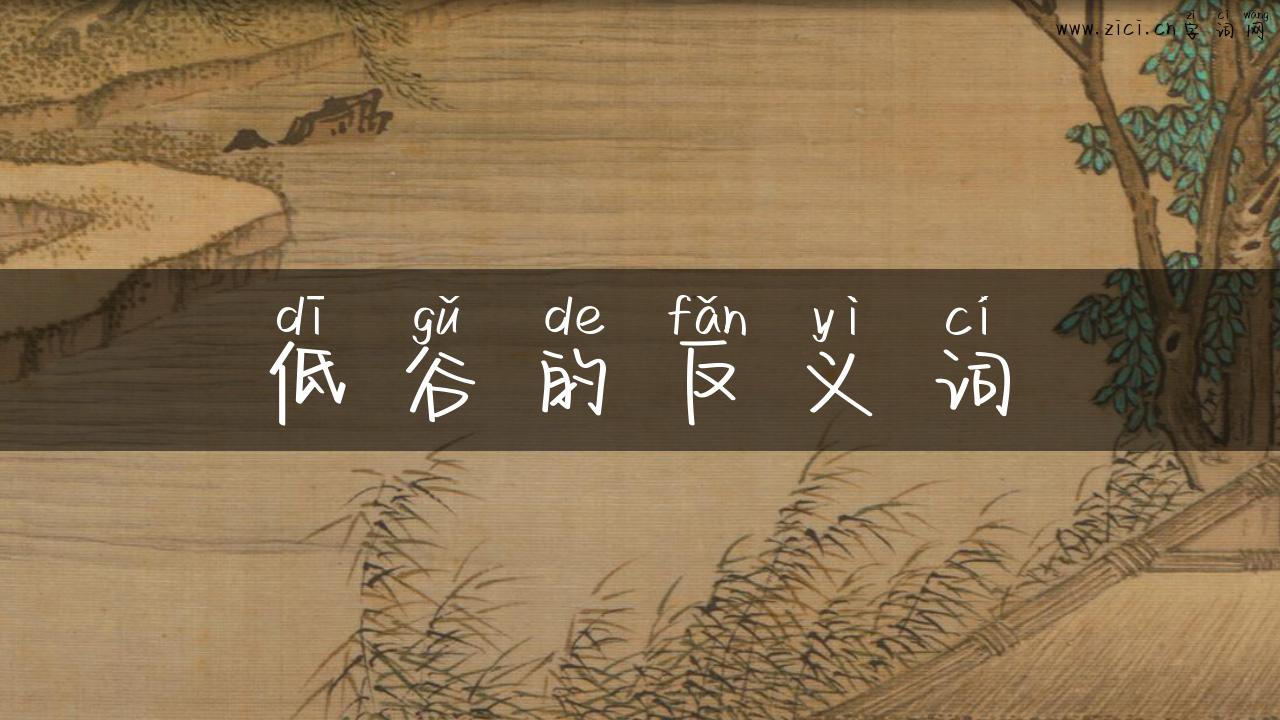 zì cí wǎng
www.zici.cn字词网
dī gǔ de fǎn yì cí
低谷的反义词